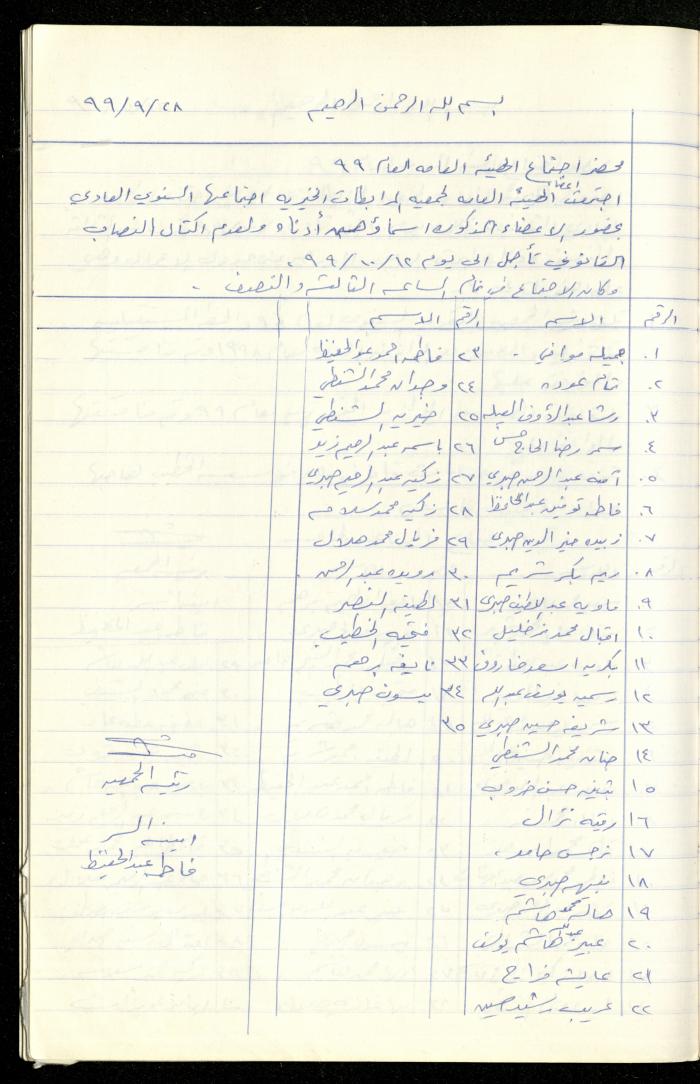 بسم الله الرحمن الرحيم ٩٩/٩/٢٨
محضر اجتماع الهيئه العامه لعام ٩٩
اجتمعت اعضاء الهيئه العامه لجمعيه المرابطات الخيريه اجتماعها السنوي العادي
بحضور الاعضاء المذكوره اسماؤهن أدناه ولعدم اكتمال النصاب
القانوني تأجل الى يوم ٩٩/١٠/١٢
وكان الاجتماع في تمام الساعه الثالثه والنصف .
الرقم الاسم الرقم الاسم
١. جميله موافي . ٢٣ فاطمه احمد عبد الحفيظ
٢. تمام عوده ٢٤ وجدان محمد الشنطي
٣. رشا عبد الرؤوف ٢٥ خيريه الشنطي
٤. سمر رضا الحاج حسن ٢٦ باسمه عبد الرحيم زيد
٥. آمنه عبد الرحمن صبري ٢٧ زكيه عبد الرحيم صبري
٦. فاطمه توفيق عبد الحافظ ٢٨ زكيه محمد سلامه
٧. زبيده خير الدين صبري ٢٩ فريال محمد هلال
٨. ريم بكر شريم ٣٠ رويده عبد الرحمن .
٩. ماويه عبد اللطيف صبري ٣١ لطيفه النصر
١٠. اقبال محمد نزر خليل ٣٢ فتحيه الخطيب
١١ بكريه اسعد فاروق ٣٣ نايفه ابراهيم
١٢ رسميه يوسف عبد الله ٣٤ ميسون صبري
١٣ شريفه حسين صبري ٣٥
١٤ حنان محمد الشنطي
١٥ بثينه حسن خروب
١٦ رقيه نزال
١٧ نرجس حامد .
١٨ نبيهه صبري
١٩ هاله محمد هاشم
٢٠ عبير عبد الله هاشم يوسف
٢١ عايشه فراج
٢٢ عريب رشيد حسين
رئيسه الجمعيه
امينه السر
فاطمه عبد الحفيظ